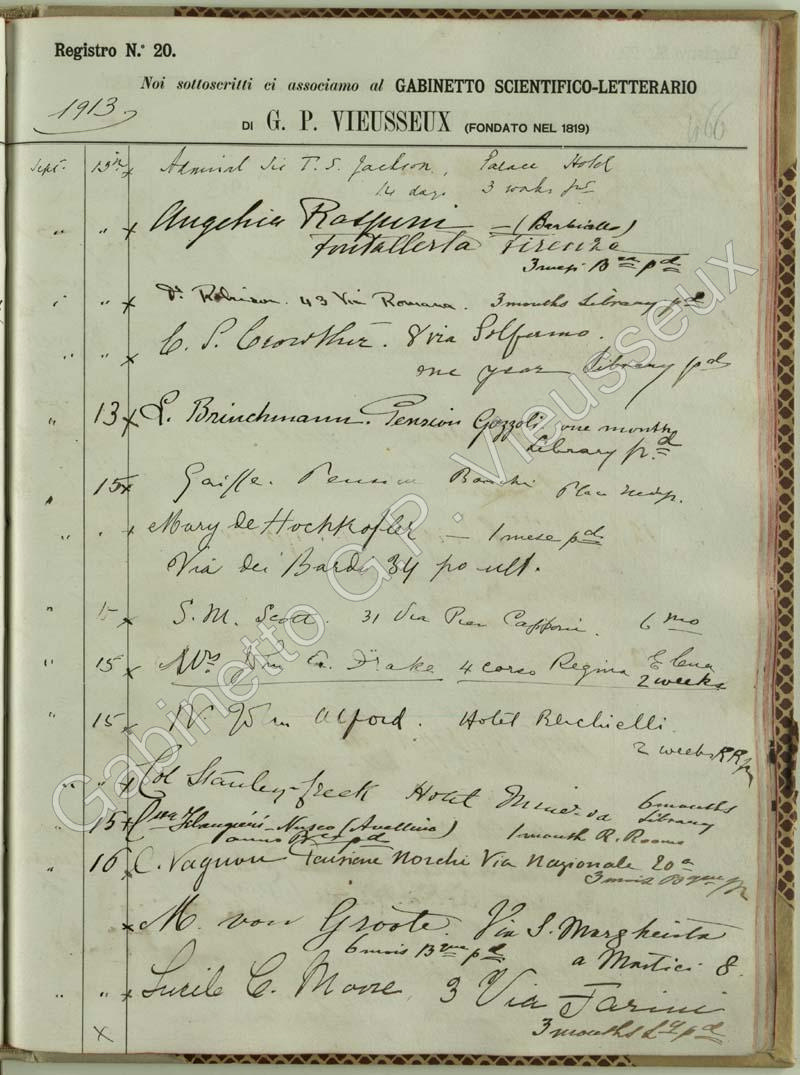 Registro N.° 20.
Noi sottoscritti ci associamo al GABINETTO SCIENTIFICO-LETTERARIO
1913.
DI G. P. VIEUSSEUX (FONDATO NEL 1819)
466
Sept. 13th x Admiral Sir T. S. Jackson, Palace Hotel
14 days 3 works pd
" " x Angelica Rasponi = (Barbiallo)
Fontallerta Firenze
3 mesi Bca pd
" " x Dr Robinson. 43 Via Romana. 3 months Library pd
" " x C. S. Crowther. 8 via Solferino.
one year Library pd
" 13 x L. Brinchmann. Pension Gozzoli one month
Library pd
" 15 x Gaiffe. Pension Banchi
" " x Mary de Hochkofler – 1 mese pd
Via dei Bardi 34 po ult.
" 15 x S. M. Scott. 31 Via Pier Capponi. 6 mo
" 15 x Mrs Wm Drake 4 corso Regina Elena
2 weeks
" 15 x Alford. Hotel Berchielli.
2 weeks RR
" " x Col Stanley-Creek Hotel Minerva 6 months
Library
" 15 x Filangieri-Nusco (Avellino) 1 month R. Rooms
anno Bca pd
" 16 C. Vagnon Pensione Norchi Via Nazionale 20a
3 mois Bque
x M. von Groote. Via S. Margherita
6 mois Bque pd a Montici 8.
" " x Lucile C. Moore 3 Via Farini
3 months Ly pd
x
Gabinetto G.P. Vieusseux